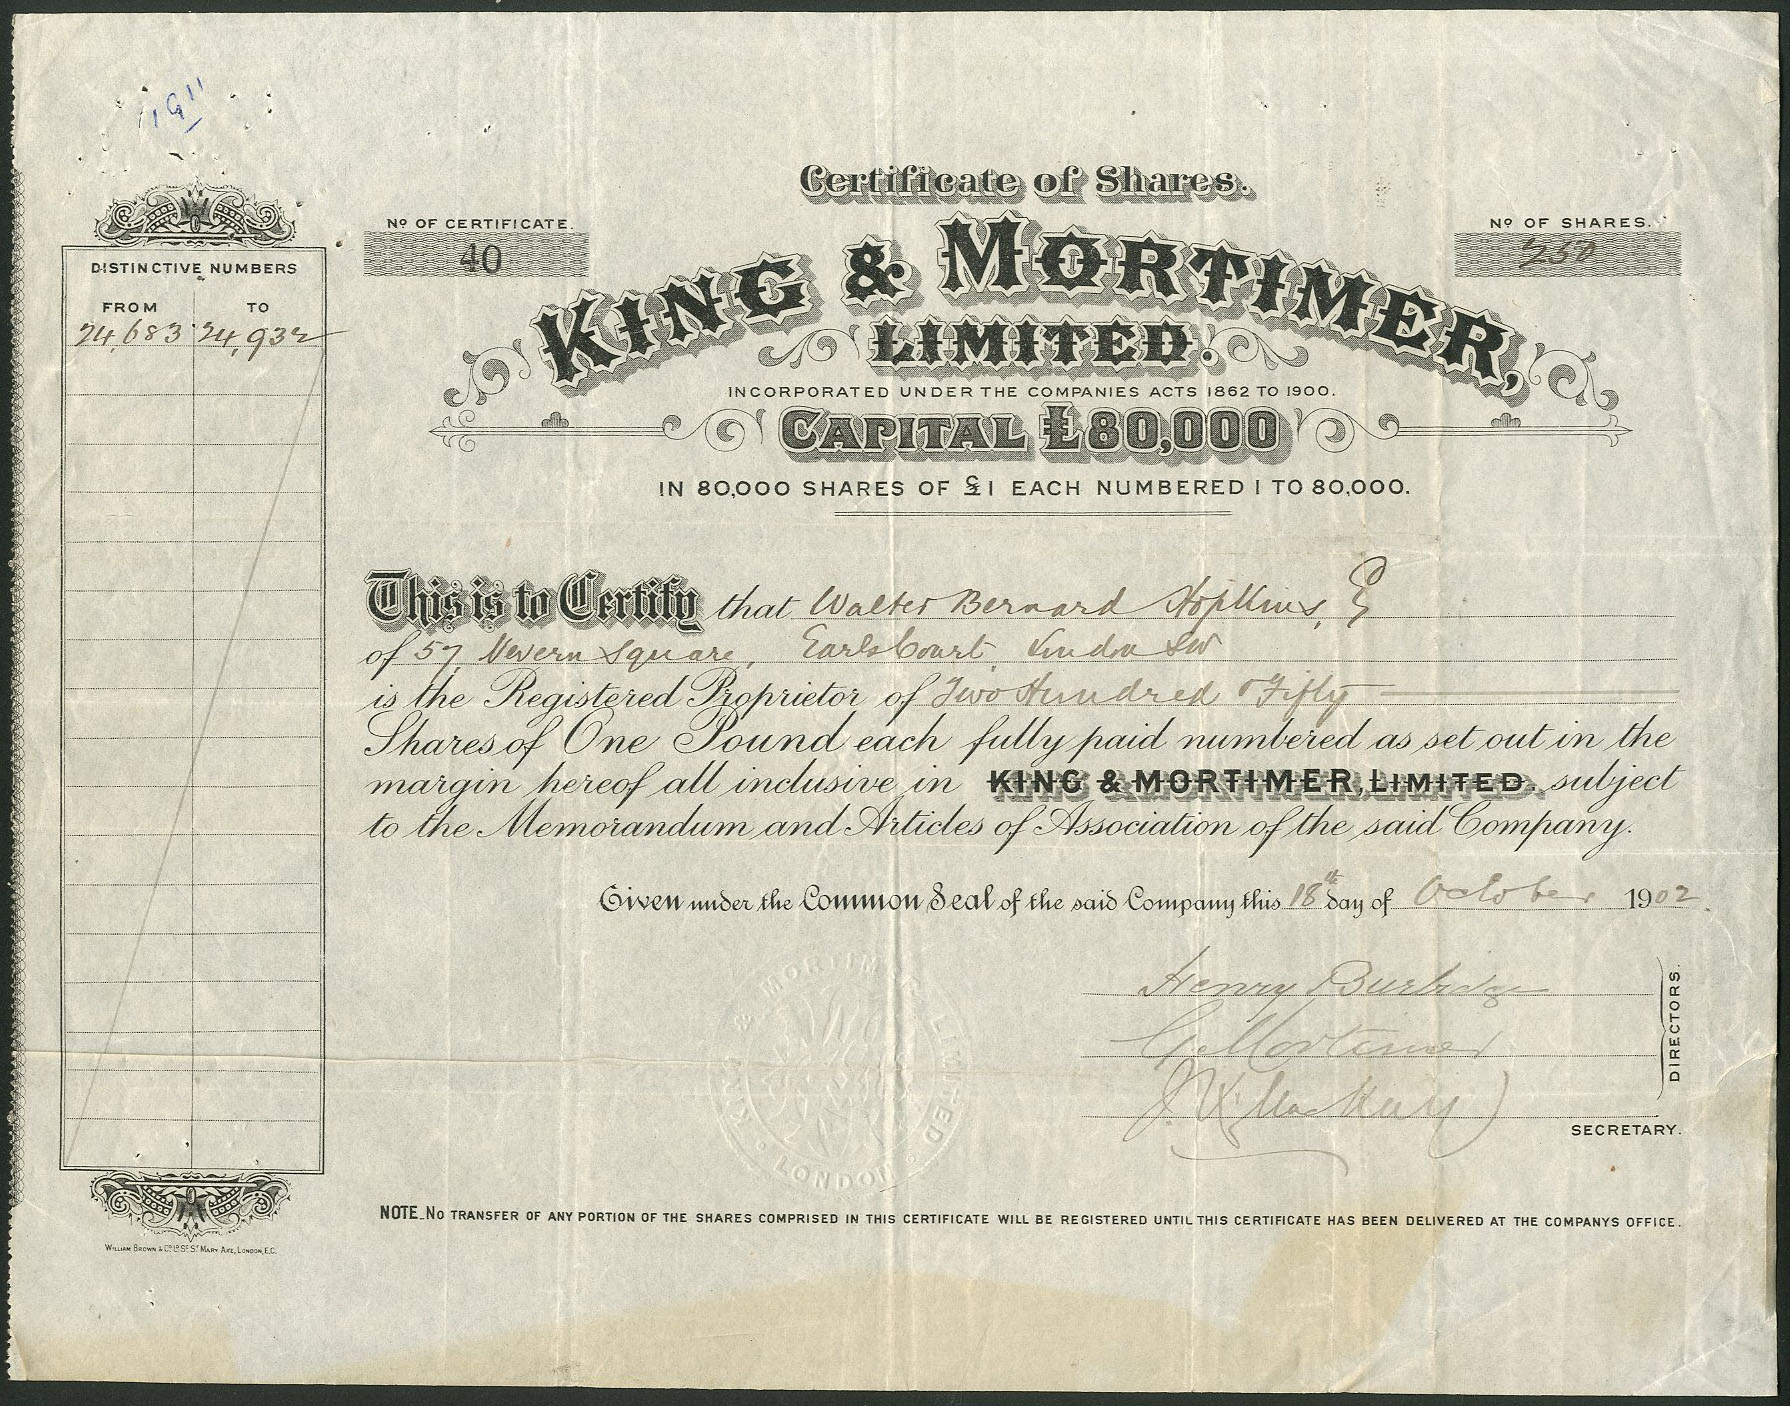 1911
Certificate of Shares.
No OF CERTIFICATE.
40
No OF SHARES.
250
KING & MORTIMER,
LIMITED.
INCORPORATED UNDER THE COMPANIES ACTS 1862 TO 1900.
CAPITAL £80,000
IN 80,000 SHARES OF £1 EACH NUMBERED 1 TO 80,000.
DISTINCTIVE NUMBERS
FROM TO
24,683 24,932
This is to Certify that Walter Bernard Hopkins,
of 57, Nevern Square, Earls Court, London SW
is the Registered Proprietor of Two Hundred & Fifty
Shares of One Pound each fully paid numbered as set out in the
margin hereof all inclusive in KING & MORTIMER, LIMITED. subject
to the Memorandum and Articles of Association of the said Company.
Given under the Common Seal of the said Company this 18th day of October 1902.
Henry Burbidge
G. Mortimer
DIRECTORS.
J. Mackay
SECRETARY.
KING & MORTIMER LIMITED · LONDON ·
NOTE. No TRANSFER OF ANY PORTION OF THE SHARES COMPRISED IN THIS CERTIFICATE WILL BE REGISTERED UNTIL THIS CERTIFICATE HAS BEEN DELIVERED AT THE COMPANYS OFFICE.
WILLIAM BROWN & Co. Ld. St. MARY AXE, LONDON, E.C.